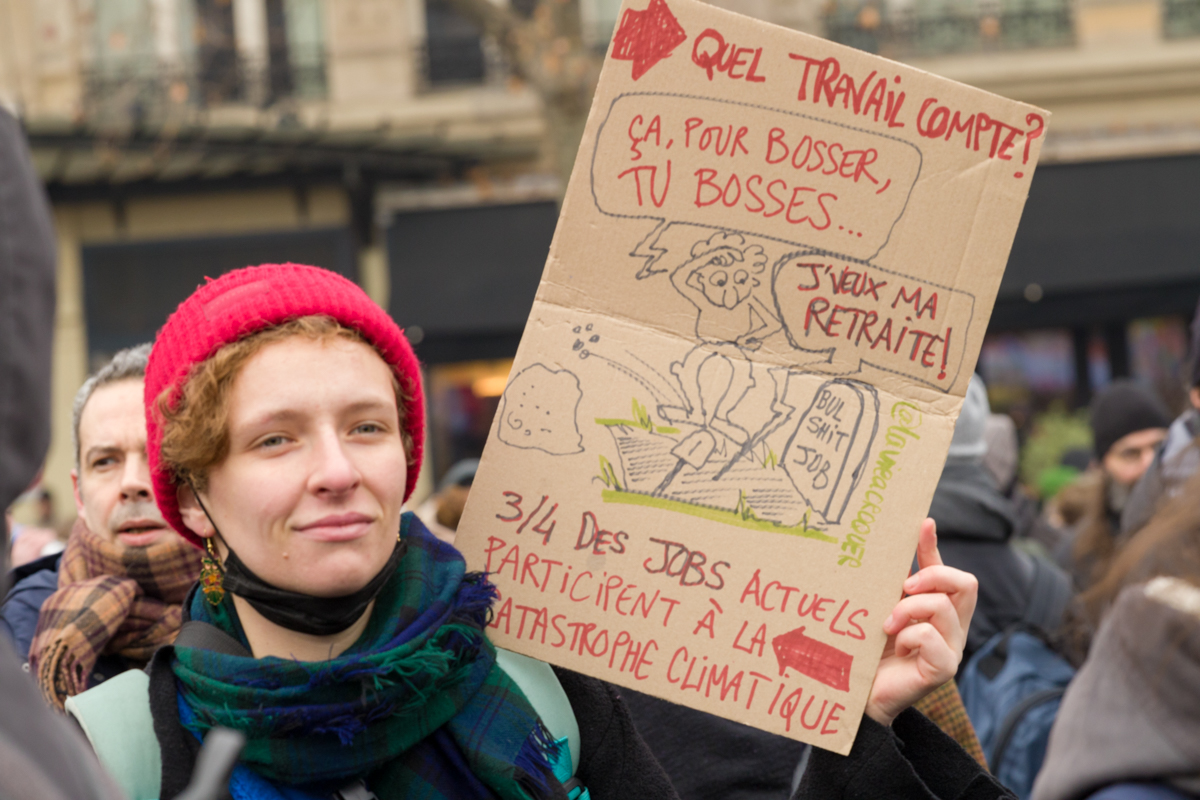 QUEL TRAVAIL COMPTE?
ÇA, POUR BOSSER,
TU BOSSES...
J'VEUX MA
RETRAITE!
BUL
SHIT
JOB
3/4 DES JOBS ACTUELS
PARTICIPENT À LA
CATASTROPHE CLIMATIQUE